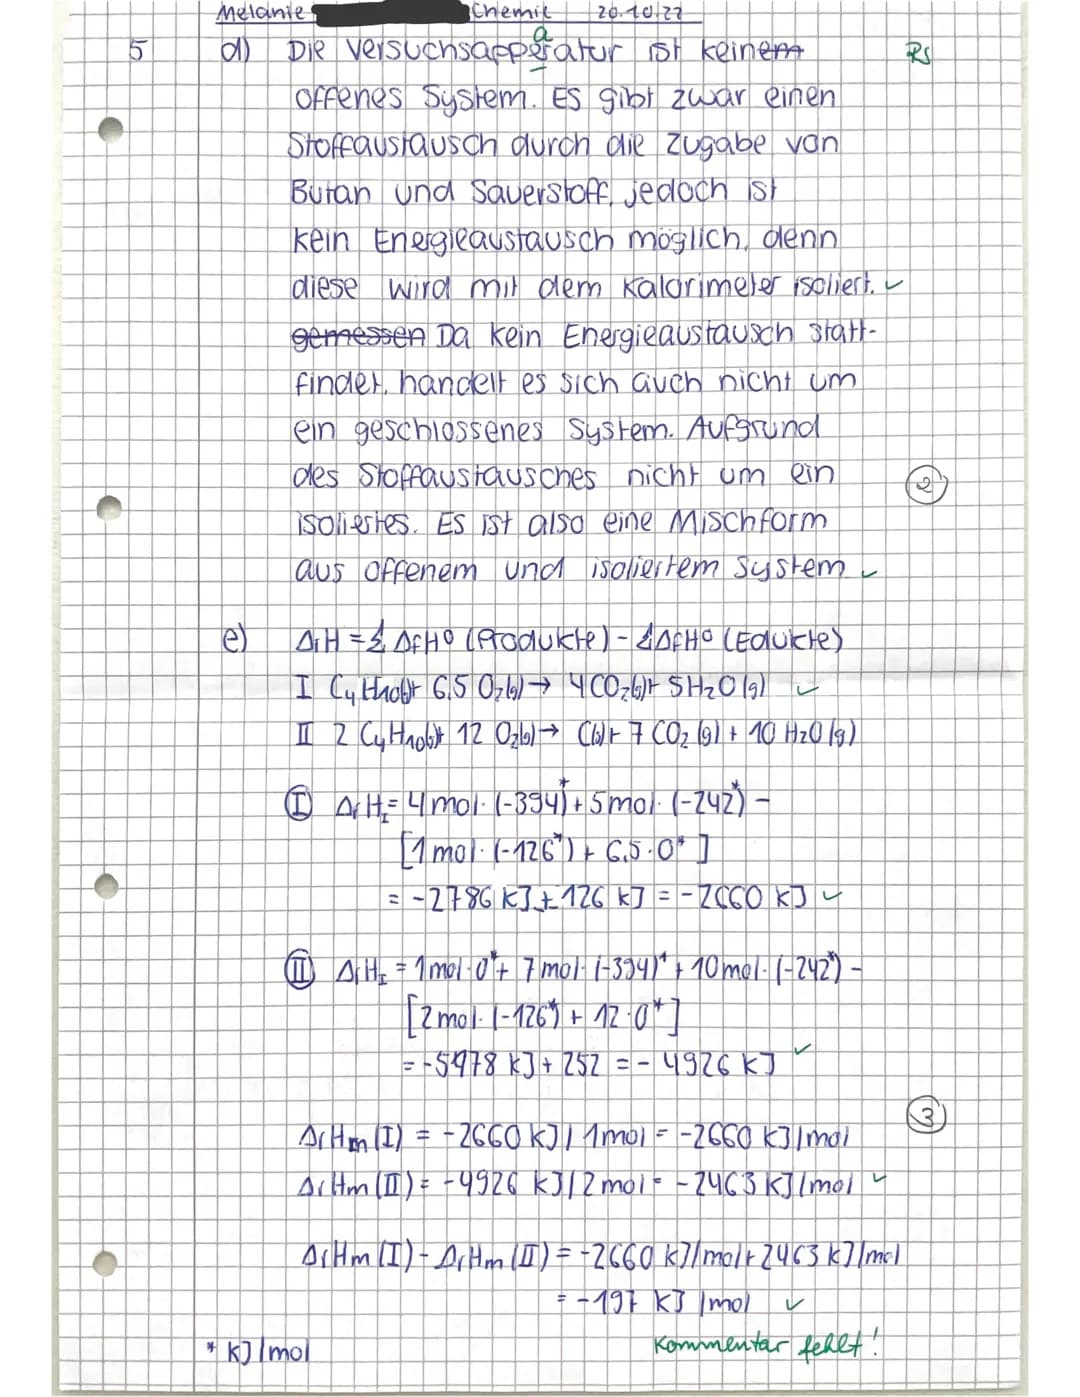 Melanie Chemie 20.10.22
5 d) Die Versuchsapperatur ist keinem RS
a
offenes System. Es gibt zwar einen
Stoffaustausch durch die Zugabe von
Butan und Sauerstoff, jedoch ist
kein Energieaustausch möglich, denn
diese wird mit dem Kalorimeter isoliert. ✓
gemessen Da kein Energieaustausch statt-
findet, handelt es sich auch nicht um
ein geschlossenes System. Aufgrund
des Stoffaustausches nicht um ein ②
isoliertes. Es ist also eine Mischform
aus offenem und isoliertem System ✓
e) ΔrH = Σ ΔfH° (Produkte) - ΣΔfH° (Edukte)
I C₄H₁₀(g)+ 6,5 O₂(g) → 4CO₂(g)+ 5H₂O(g) ✓
II 2 C₄H₁₀(g)+ 12 O₂(g) → C(s)+ 7 CO₂(g) + 10 H₂O(g)
Ⓘ ΔrH_I = 4 mol · (-394)* + 5 mol · (-242*) -
[1 mol · (-126*) + 6,5 · 0*]
= -2786 kJ + 126 kJ = -2660 kJ ✓
Ⅱ ΔrH_I = 1 mol · 0* + 7 mol · (-394)* + 10 mol · (-242*) -
[2 mol · (-126*) + 12 · 0*]
= -5178 kJ + 252 = - 4926 kJ ✓
③
ΔrHm (I) = -2660 kJ / 1 mol = -2660 kJ/mol
ΔrHm (II) = -4926 kJ / 2 mol = -2463 kJ/mol ✓
ΔrHm (I) - ΔrHm (II) = -2660 kJ/mol + 2463 kJ/mol
= -197 kJ /mol ✓
* kJ/mol Kommentar fehlt!